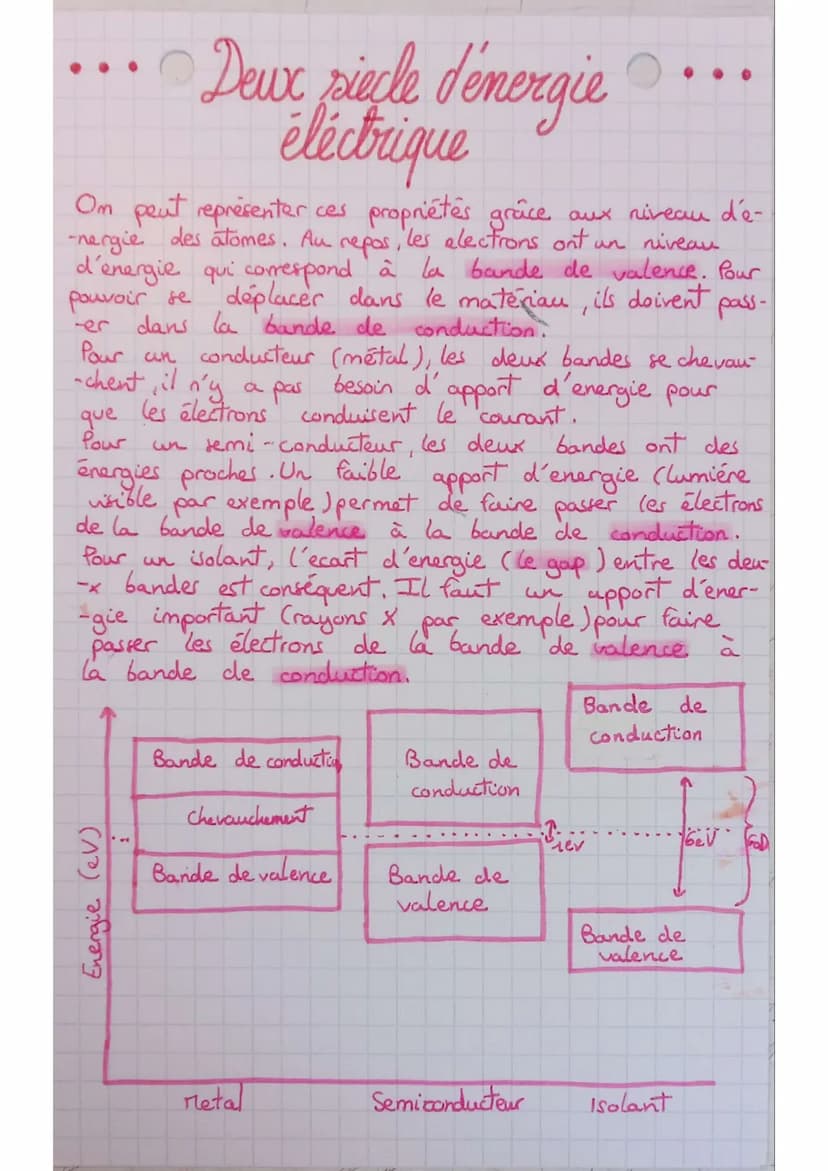 Deux siecle d'énergie
éléctrique
On peut représenter ces propriétés grâce aux niveau d'é-
-nergie des atomes. Au repos, les electrons ont un niveau
d'énergie qui correspond à la bande de valence. Pour
pouvoir se déplacer dans le matériau, ils doivent pass-
-er dans la bande de conduction.
Pour un conducteur (métal), les deux bandes se chevau-
-chent, il n'y a pas besoin d'apport d'energie pour
que les électrons conduisent le courant.
Pour un semi-conducteur, les deux bandes ont des
énergies proches. Un faible apport d'energie (lumiére
visible par exemple) permet de faire passer les électrons
de la bande de valence à la bande de conduction.
Pour un isolant, l'ecart d'energie (le gap) entre les deu-
-x bandes est conséquent. Il faut un apport d'éner-
-gie important (rayons X par exemple) pour faire
passer les électrons de la bande de valence à
la bande de conduction.
Bande de
conduction
Bande de conduction
Bande de
conduction
Chevauchement
1eV
6eV
Bande de valence
Bande de
valence
Bande de
valence
Energie (eV)
Metal
Semiconducteur
Isolant